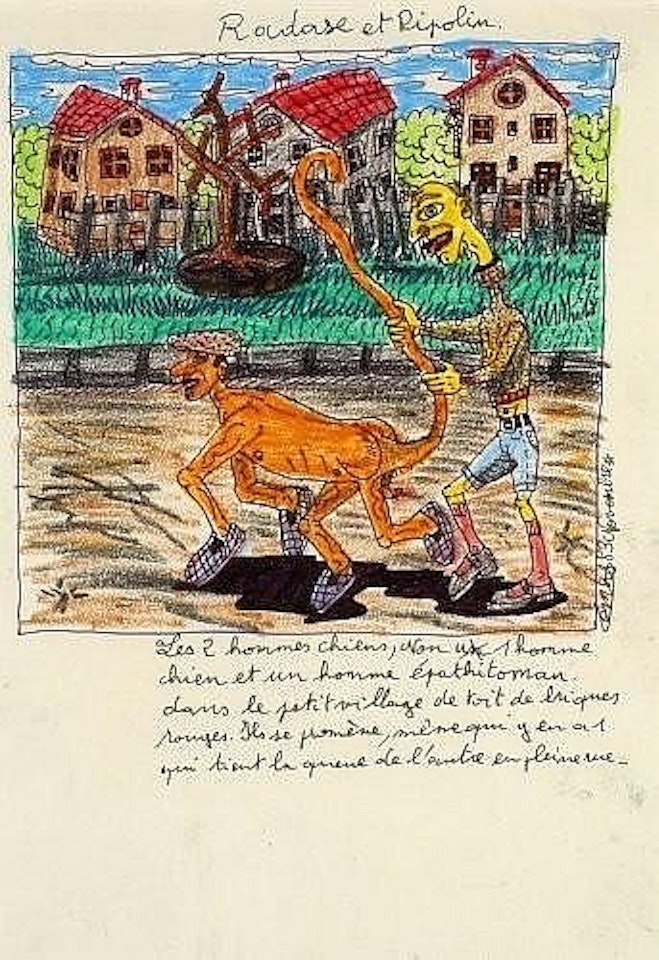 Radase et Ripolin.
Les 2 hommes chiens, non 1 homme
chien et un homme épathitoman.
dans le petit village de toit de briques
rouges. Ils se promène, même qui y en a 1
qui tient la queue de l'autre en pleine rue_